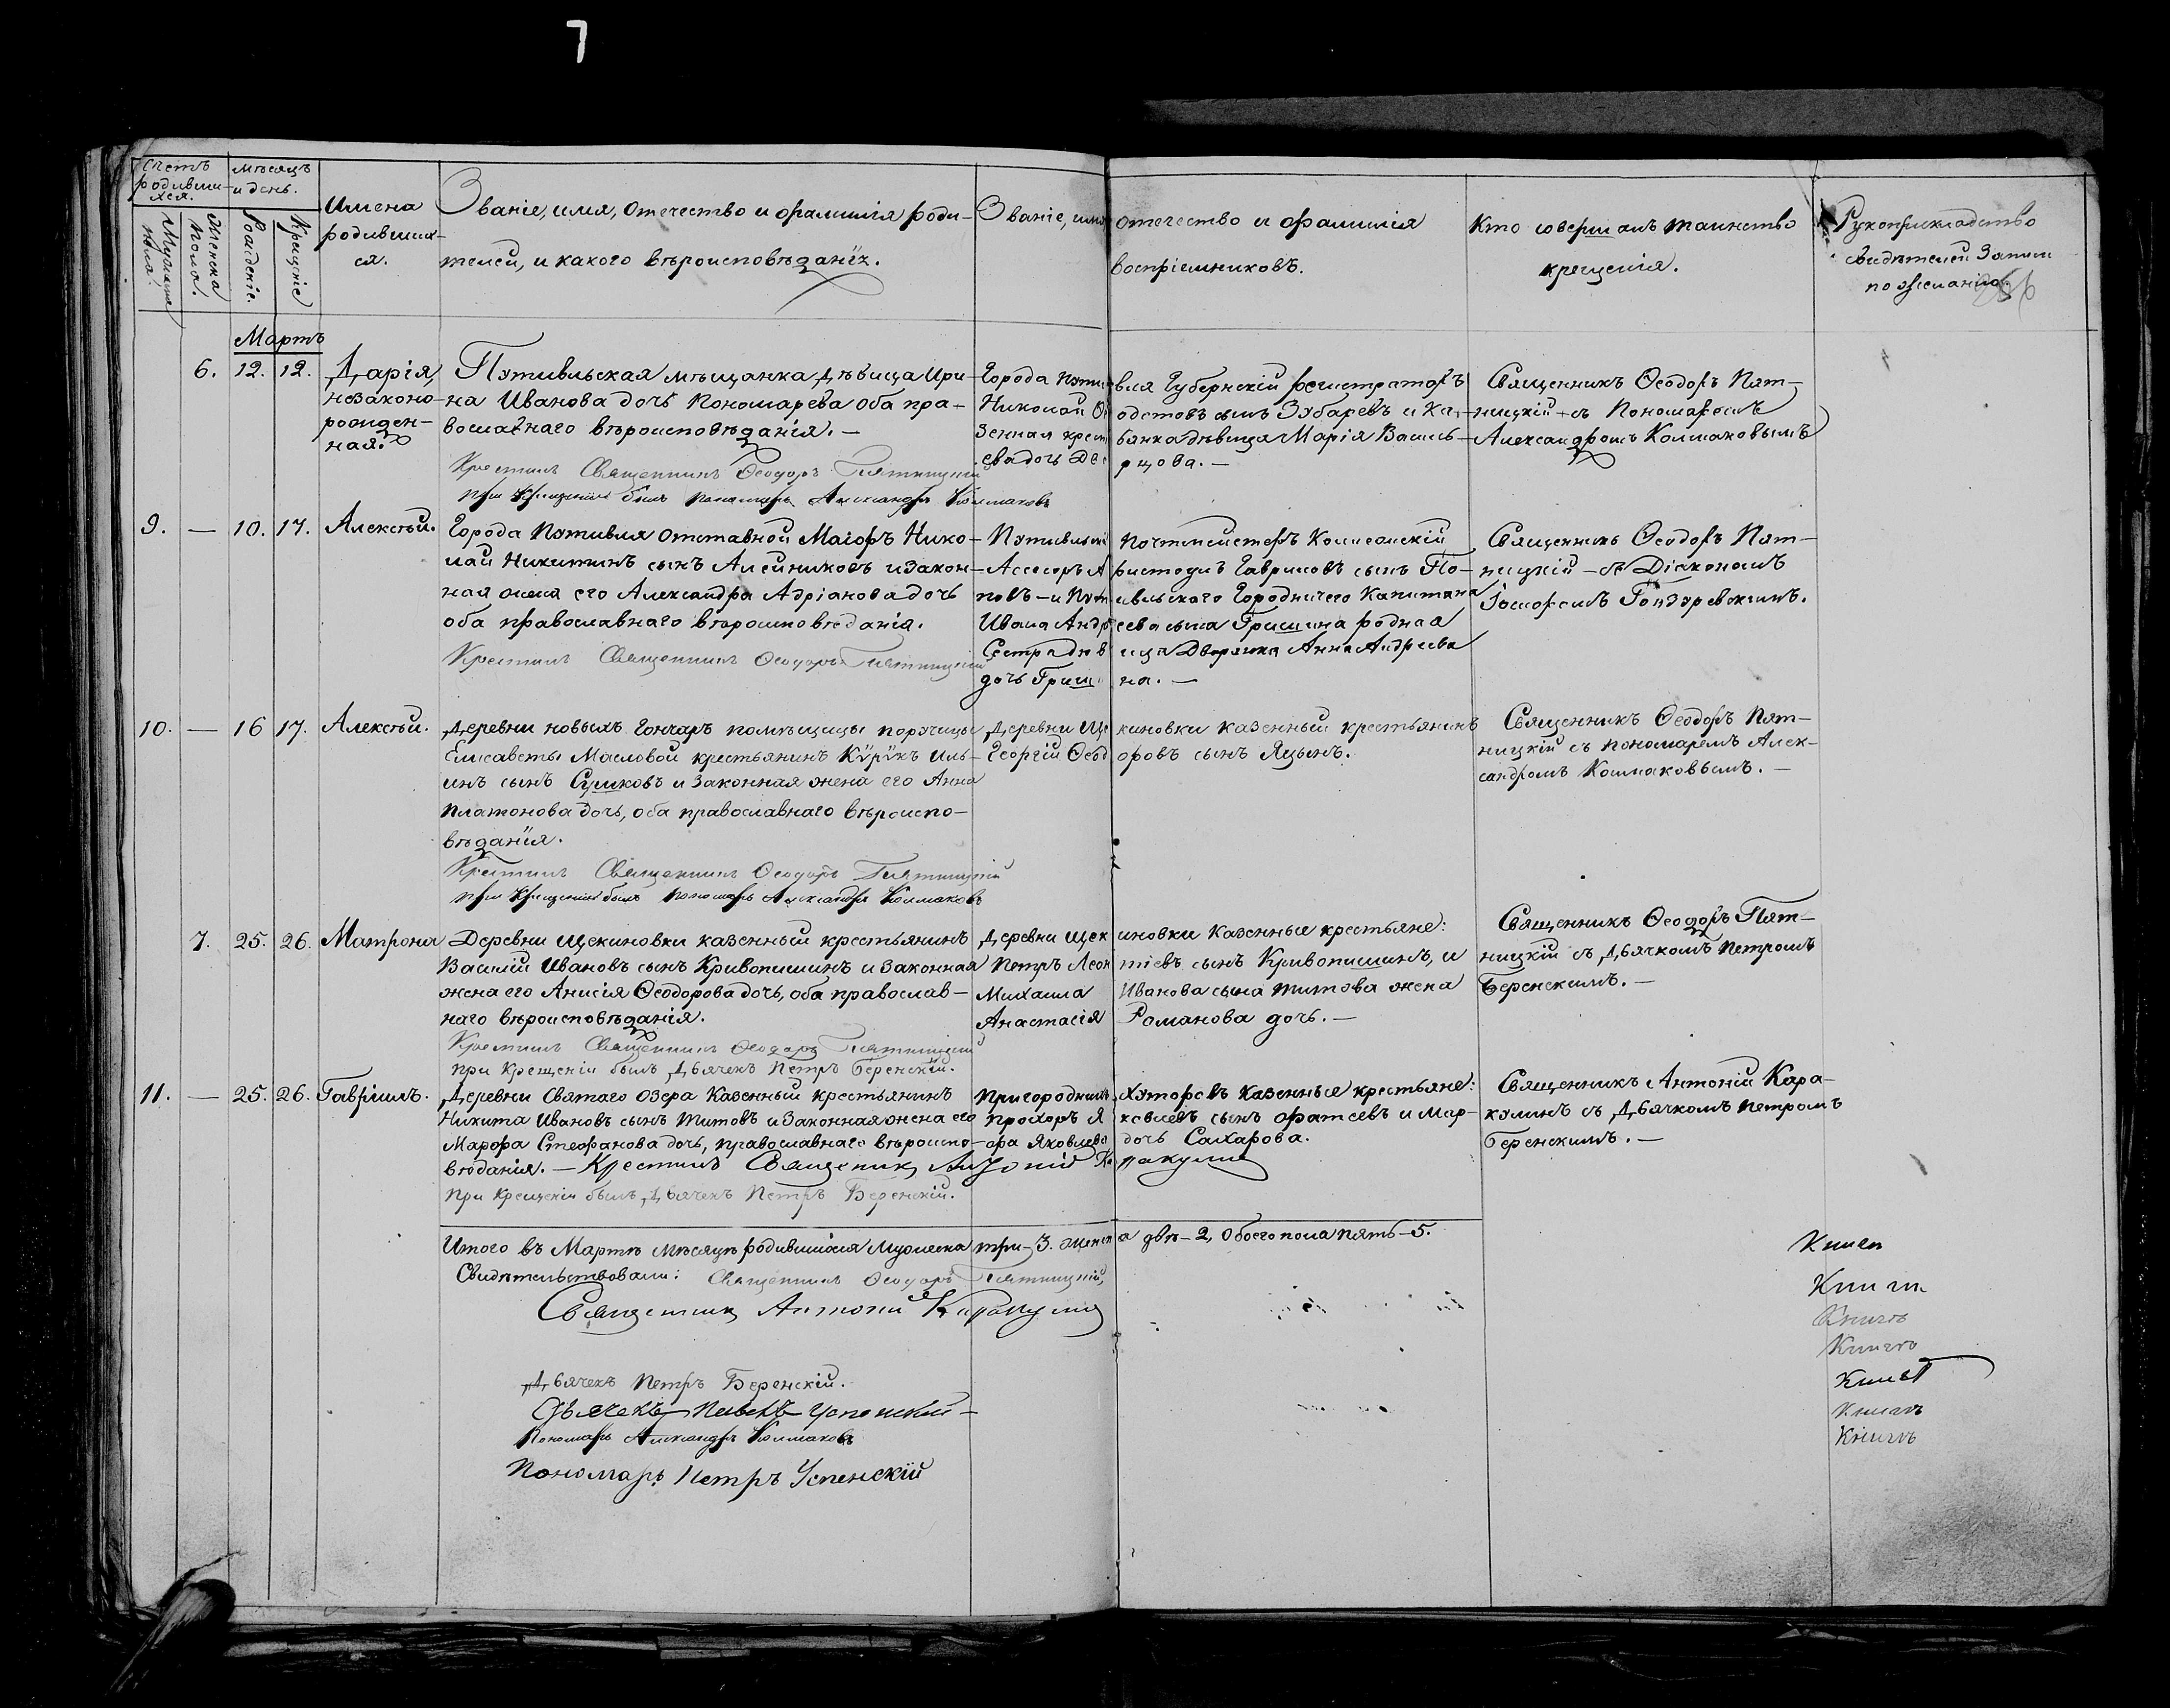 7
Счетъ родивши-хся.
Мѣсяцъ и день.
Мужеска пола.
Женска пола.
Рожденіе.
Крещеніе
Имена родивших-ся.
Званіе, имя, отечество и фамилія роди-
телей, и какого вѣроисповѣданія.
Званіе, имя отечество и фамилія
воспріемниковъ.
Кто совершалъ таинство
крещенія.
Рукоприкладство
свидѣтелей записи
по желанію.
Мартъ
6. 12. 12. Дарія,
незаконо-
рожден-
ная.
Путивльская мѣщанка дѣвица Ири-
на Иванова дочь Пономарева оба пра-
вославнаго вѣроисповѣданія. —
Крестилъ Священникъ Ѳеодоръ Пятницкій
при крещеніи былъ пономарь Александръ Колмаковъ
Города Пути вля Губернскій регистраторъ
Николай Ѳ одотовъ сынъ Зубаревъ и Ка-
зенная крест ьянка дѣвица Марія Василь-
ева дочь рцова. —
Священникъ Ѳеодоръ Пят-
ницкій съ Пономаремъ
Александромъ Колмаковымъ
9. — 10. 17. Алексѣй.
Города Путивля отставной Маіоръ Нико-
лай Никитинъ сынъ Алейниковъ и закон-
ная жена его Александра Адріанова дочь
оба православнаго вѣроисповѣданія.
Крестилъ Священникъ Ѳеодоръ Пятницкій
Путивльскій Почтмейстеръ Колежскій
Ассесоръ А ристодъ Гавриловъ сынъ По-
повъ — и Пут ивльскаго Городничего Капитана
Ивана Андр еева сына Гришина родная
Сестра дѣв ица Дворянка Анна Андреева
дочь Гриши на. —
Священникъ Ѳеодоръ Пят-
ницкій — съ Діакономъ
10. — 16 17. Алексѣй.
Деревни новыхъ Гончаръ помѣщицы поручицы
Елисаветы Масловой крестьянинъ Кѵрѵкъ Иль-
инъ сынъ Сушковъ и законная жена его Анна
Платонова дочь, оба православнаго вѣроиспо-
вѣданія.
Крестилъ Священникъ Ѳеодоръ Пятницкій
при крещеніи былъ пономарь Александръ Колмаковъ
Деревни Ще киновки казенный крестьянинъ
Георгій Ѳеод оровъ сынъ Яцынъ.
Священникъ Ѳеодоръ Пят-
ницкій съ пономаремъ Алек-
сандромъ Колмаковымъ. —
7. 25. 26. Матрона
Деревни Щекиновки казенный крестьянинъ
Василій Ивановъ сынъ Кривопишинъ и законная
жена его Анисія Ѳеодорова дочь, оба православ-
наго вѣроисповѣданія.
Крестилъ Священникъ Ѳеодоръ Пятницкій
при крещеніи былъ Дьячекъ Петръ Беренскій.
Деревни Щек иновки казенные крестьяне:
Петръ Леон тіевъ сынъ Кривопишинъ, и
Михаила Иванова сына Титова жена
Анастасія Романова дочь. —
Священникъ Ѳеодоръ Пят-
ницкій съ Дьячкомъ Петромъ
Беренскимъ. —
11. — 25. 26. Гавріилъ.
Деревни Святаго Озера Казенный крестьянинъ
Никита Ивановъ сынъ Титовъ и законная жена его
Марфа Стефанова дочь, православнаго вѣроиспо-
вѣданія. — Крестилъ Священникъ Антоній Каракулин
При крещеніи былъ Дьячекъ Петръ Беренскій.
Пригороднихъ Хуторовъ казенные крестьяне:
Прохоръ Я ковлевъ сынъ Фатеевъ и Мар-
фа Яковлева дочь Сахарова.
Священникъ Антоній Кара-
кулинъ съ Дьячкомъ Петромъ
Беренскимъ. —
Итого въ Мартѣ мѣсяцѣ родившихся мужеска три — 3. женск а двѣ — 2, обоего пола пять — 5.
Свидѣтельствовали: Священникъ Ѳеодоръ Пятницкій,
Священник Антоній Каракулин
Дьячекъ Петръ Беренскій.
Дьячекъ Павелъ Успенскій —
Пономарь Александръ Колмаковъ
Пономарь Петръ Успенскій